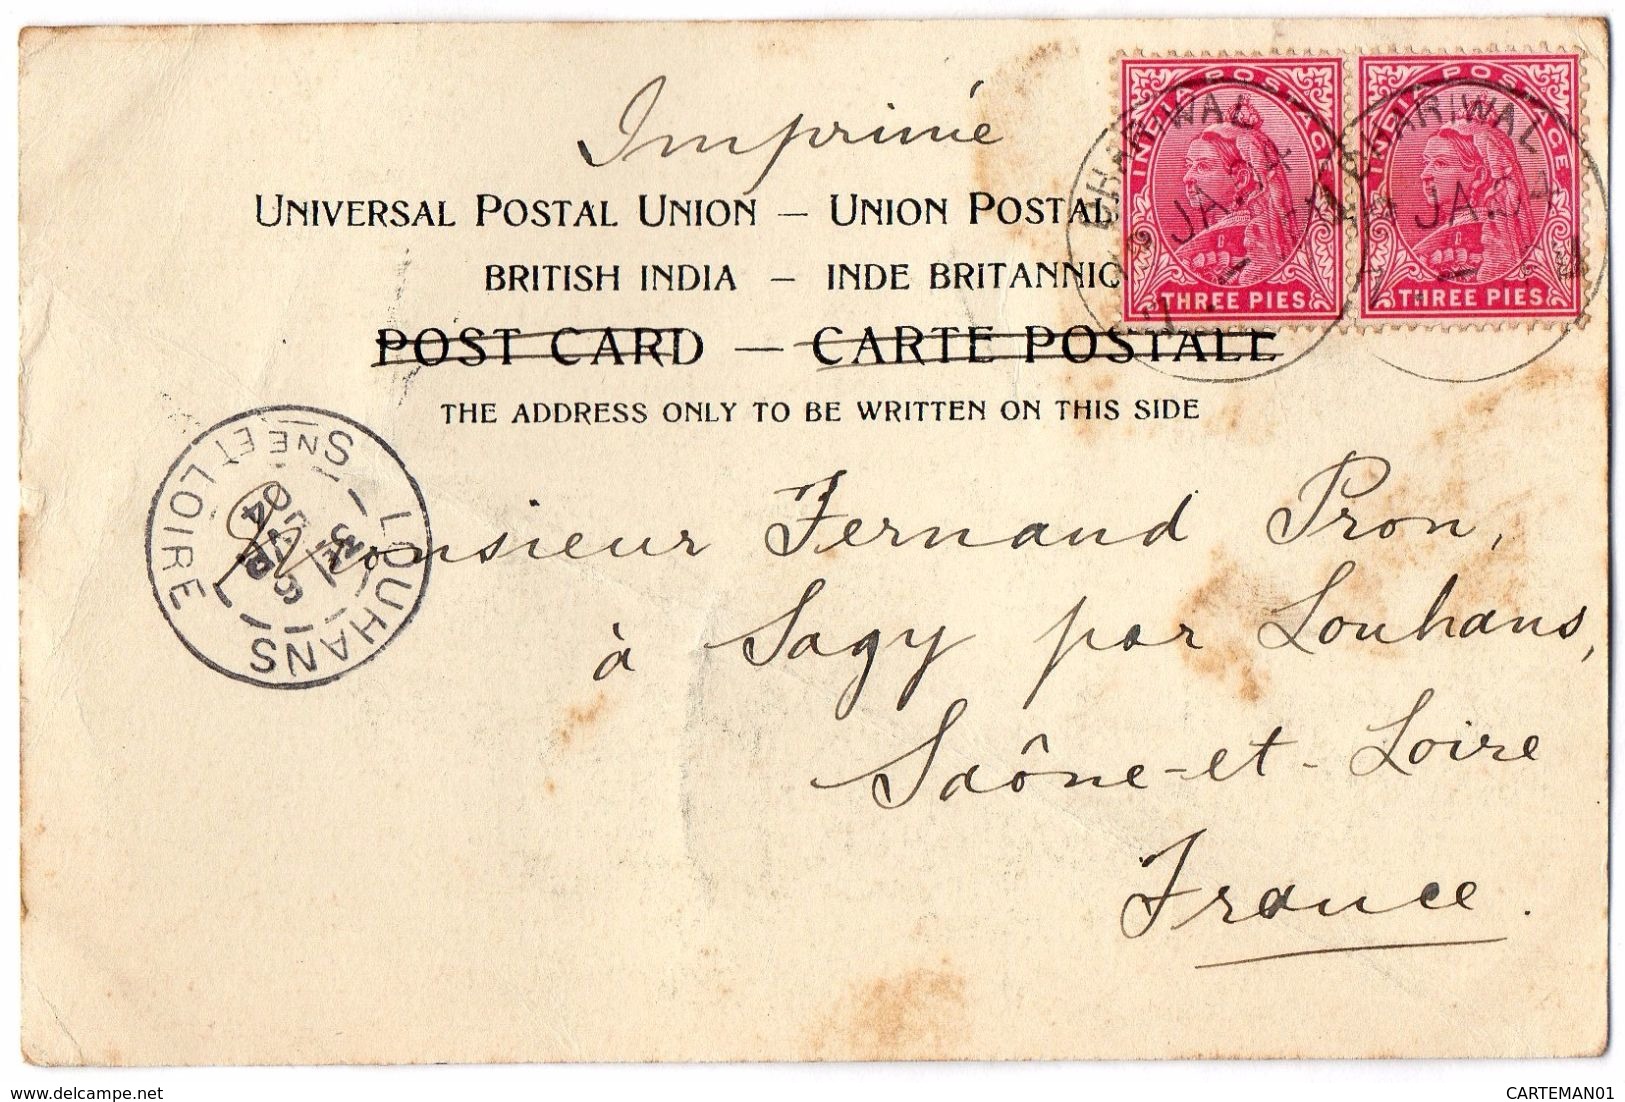 Imprimé
UNIVERSAL POSTAL UNION — UNION POSTAL
BRITISH INDIA — INDE BRITANNIQ
POST CARD — CARTE POSTALE
THE ADDRESS ONLY TO BE WRITTEN ON THIS SIDE
INDIA POSTAGE
THREE PIES
INDIA POSTAGE
THREE PIES
DHARIWAL
JA
04
DHARIWAL
JA
04
LOUHANS
SNE ET LOIRE
3E
6
04
Monsieur Fernand Pron,
à Sagy par Louhans,
Saône-et-Loire
France.
delcampe.net
CARTEMAN01